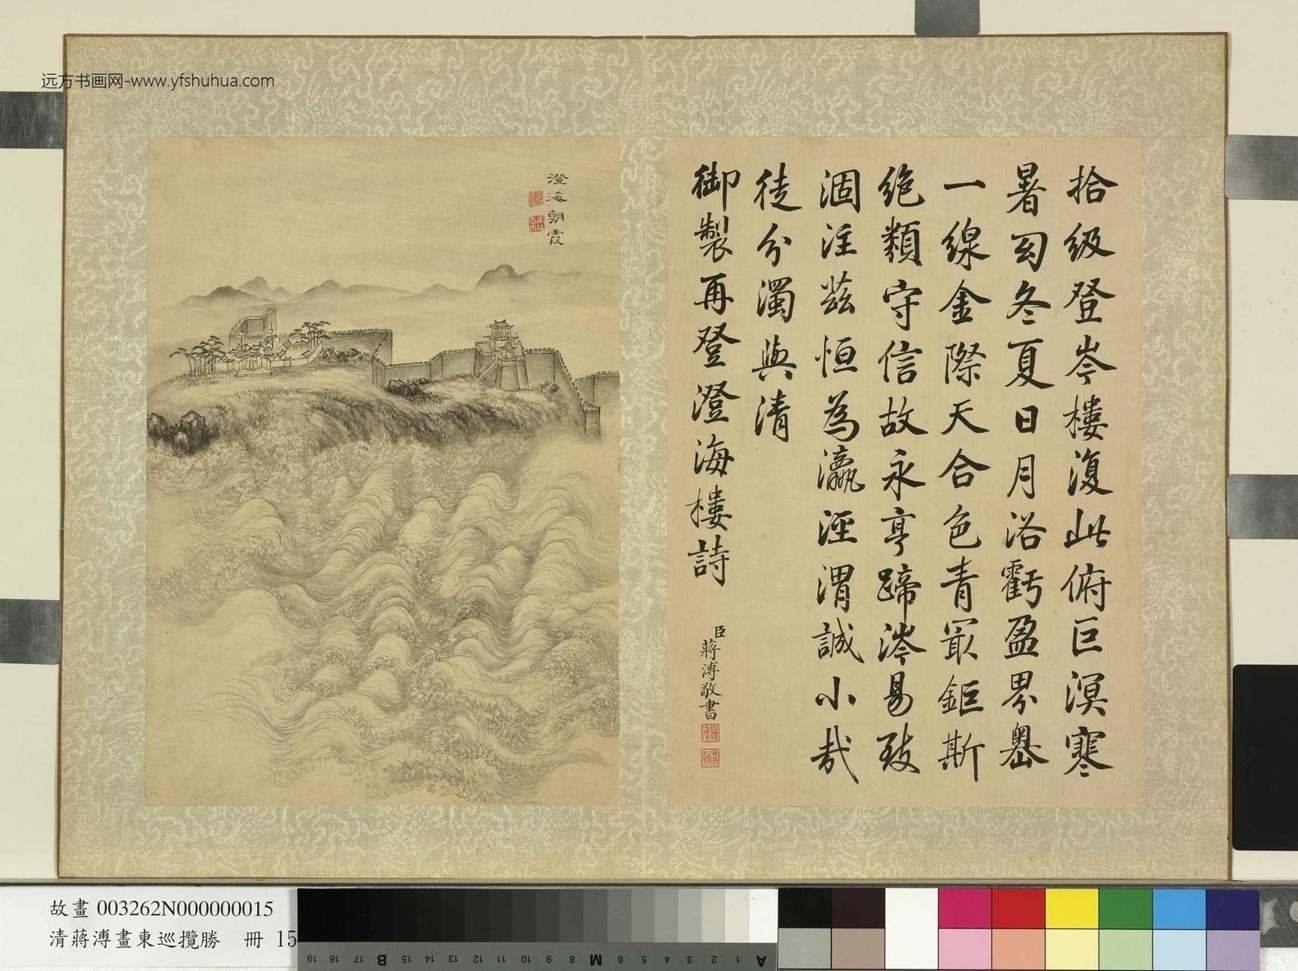 远方书画网-www.yfshuhua.com
拾级登岑楼復此俯巨溟寒
暑匆冬夏日月浴虧盈界
一線金際天合色青冣鉅斯
绝類守信故永亨蹄涔易致
涸注兹恒為瀛涇渭誠小哉
徒分濁與清
御製再登澄海楼詩
臣蔣溥敬書
澄海朝霞
故畫 003262N000000015
清蔣溥畫東巡攬勝 冊 15
19 18 17 16 15 B 14 13 12 11 10 9 8 M 6 5 4 3 2 1 A